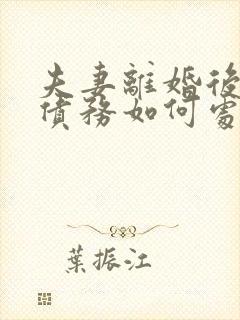 夫妻離婚後
債務如何處
葉振江